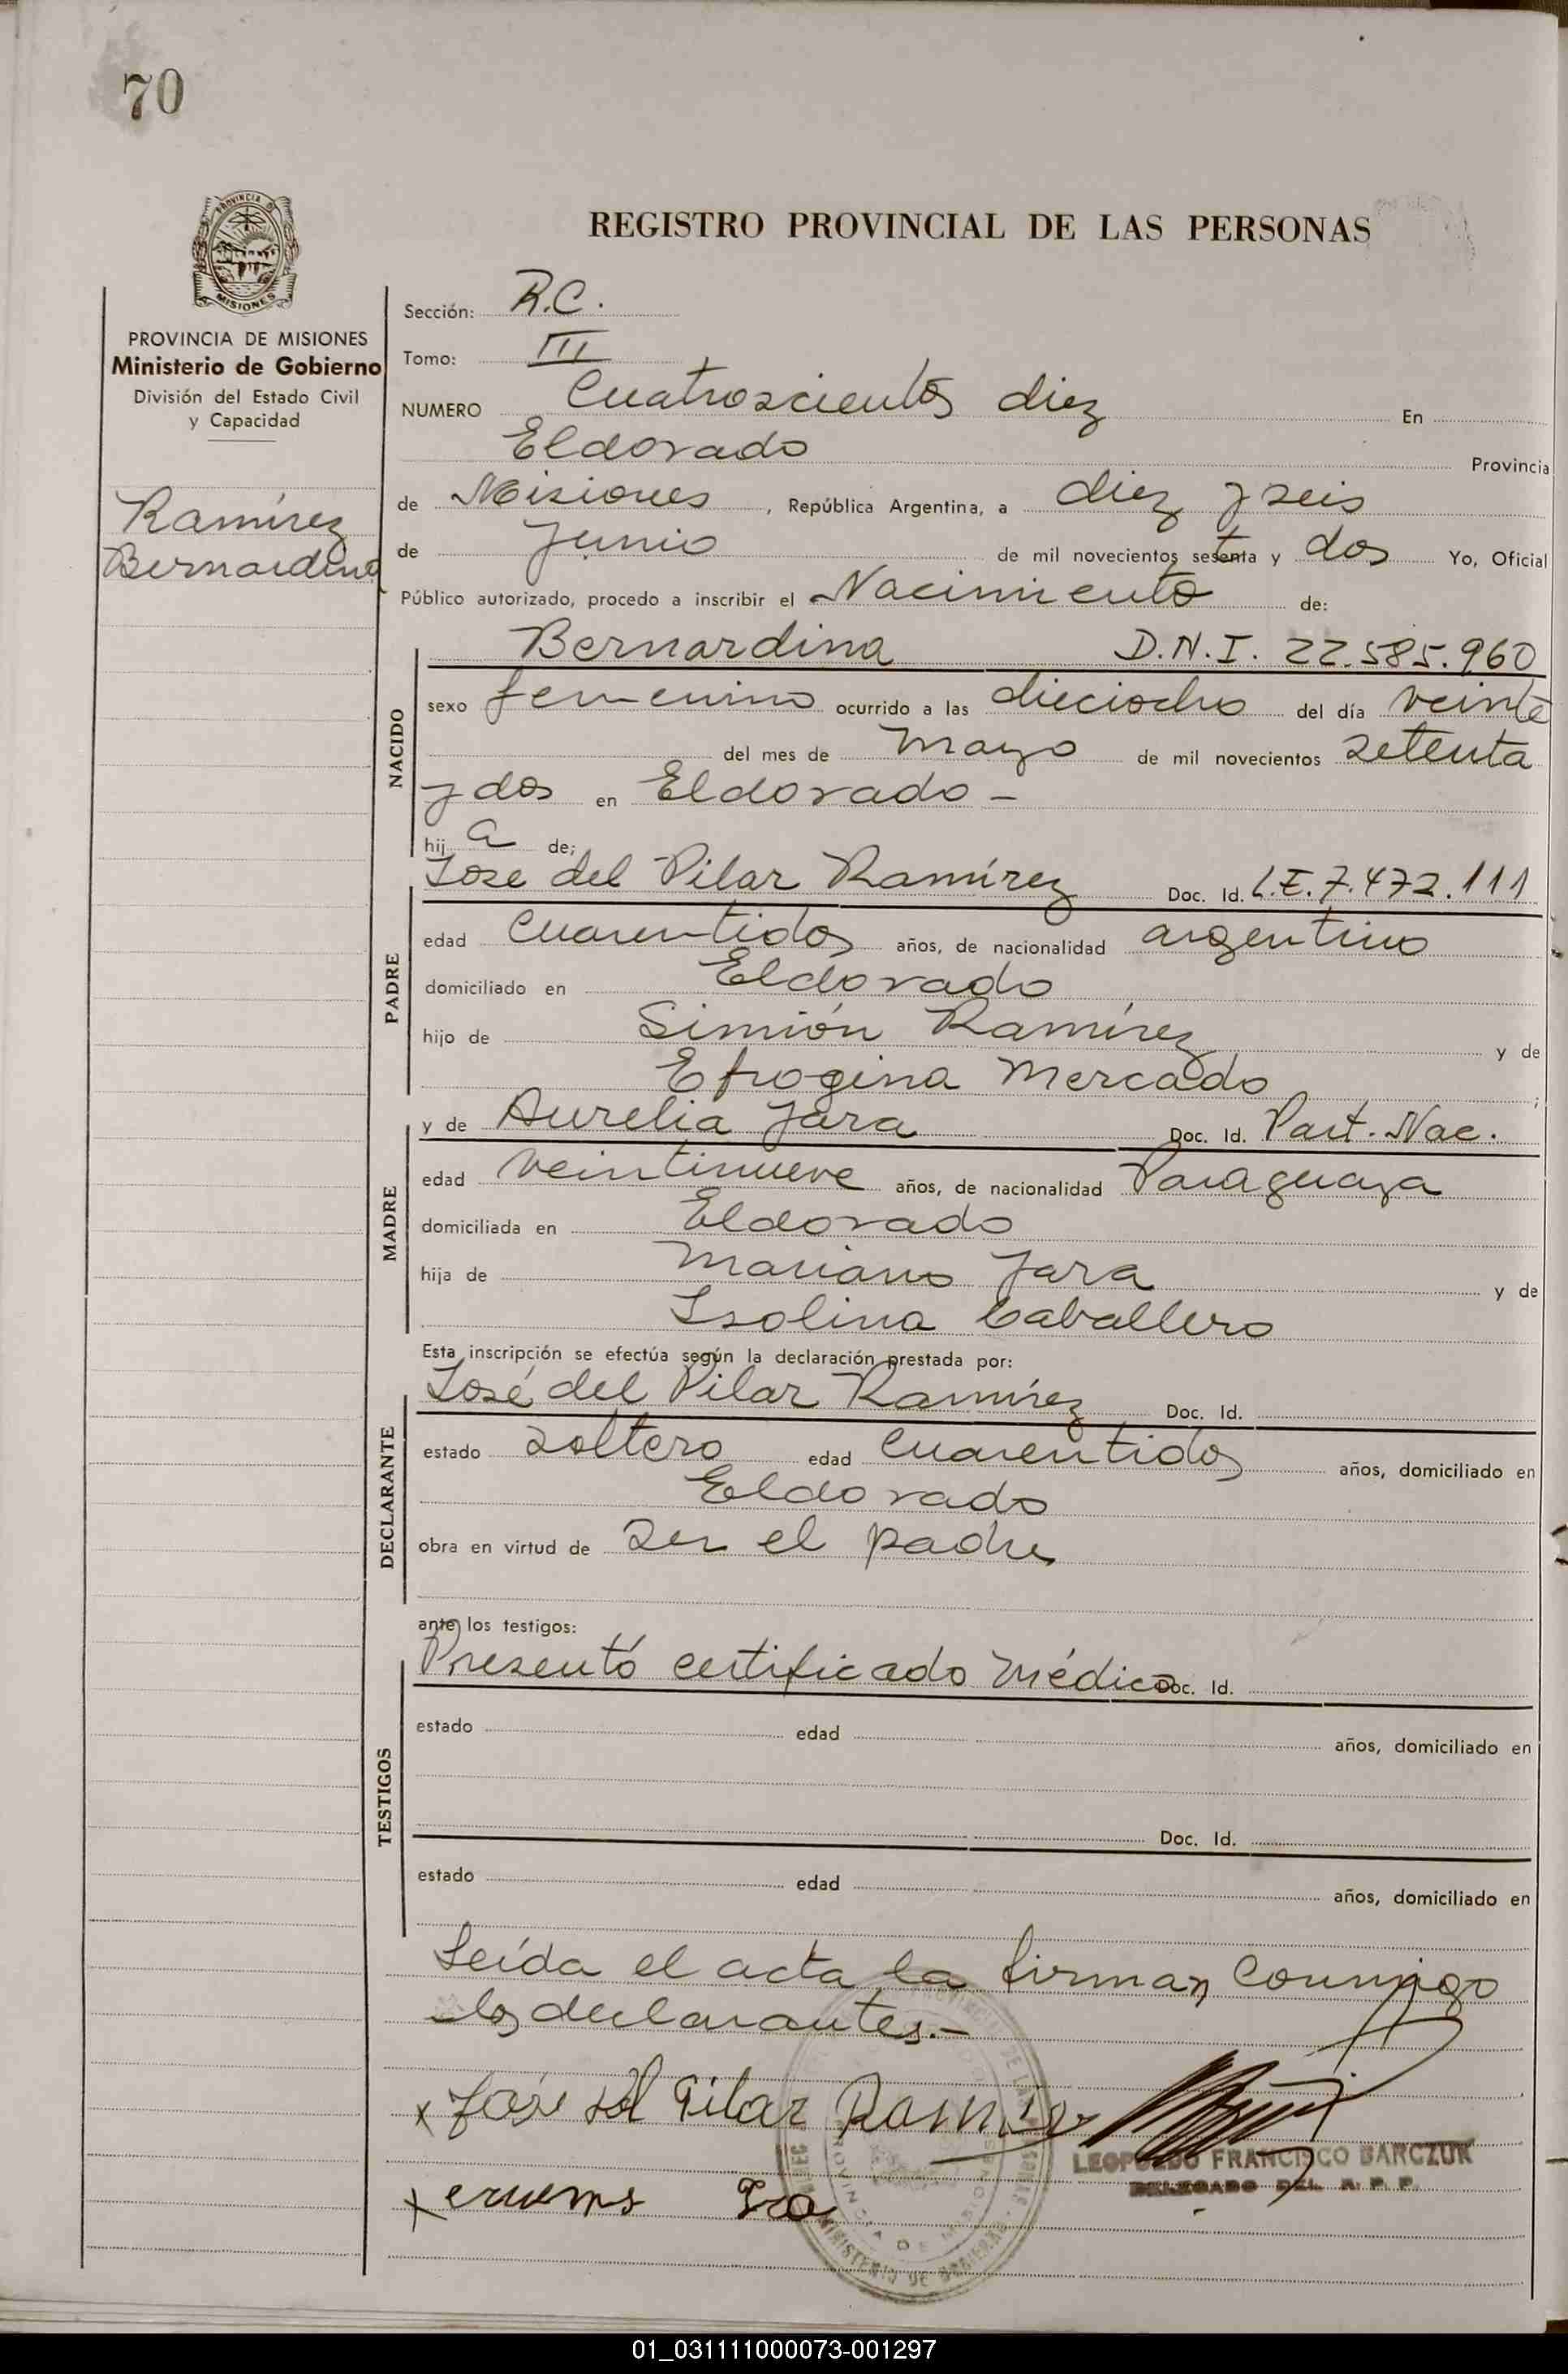 70
PROVINCIA DE
MISIONES
REGISTRO PROVINCIAL DE LAS PERSONAS
PROVINCIA DE MISIONES
Ministerio de Gobierno
División del Estado Civil
y Capacidad
Ramírez
Bernardina
Sección: R.C.
Tomo: III
NUMERO Cuatroscientos diez En
Eldorado Provincia
de Misiones, República Argentina, a diez y seis
de Junio de mil novecientos setenta y dos Yo, Oficial
Público autorizado, procedo a inscribir el Nacimiento de:
NACIDO
Bernardina D.N.I. 22.585.960
sexo femenino ocurrido a las dieciocho del día veinte
del mes de mayo de mil novecientos setenta
y dos en Eldorado -
hij a de;
PADRE
José del Pilar Ramírez Doc. Id. L.E. 7.472.111
edad cuarentidos años, de nacionalidad argentino
domiciliado en Eldorado
hijo de Simión Ramírez y de
Efrogina Mercado ;
MADRE
y de Aurelia Jara Doc. Id. Part. Nac.
edad veintinueve años, de nacionalidad Paraguaya
domiciliada en Eldorado
hija de Mariano Jara y de
Isolina Caballero
Esta inscripción se efectúa según la declaración prestada por:
DECLARANTE
José del Pilar Ramírez Doc. Id.
estado soltero edad cuarentidos años, domiciliado en
Eldorado
obra en virtud de ser el padre
ante los testigos:
TESTIGOS
Presentó certificado médico Doc. Id.
estado edad años, domiciliado en
Doc. Id.
estado edad años, domiciliado en
Leída el acta la firman conmigo
los declarantes.-
x José del Pilar Ramirez
LEOPOLDO FRANCISCO BARCZUK
DELEGADO DEL R. P. P.
x
MINISTERIO DE GOBIERNO
PROVINCIA DE MISIONES
01_031111000073-001297